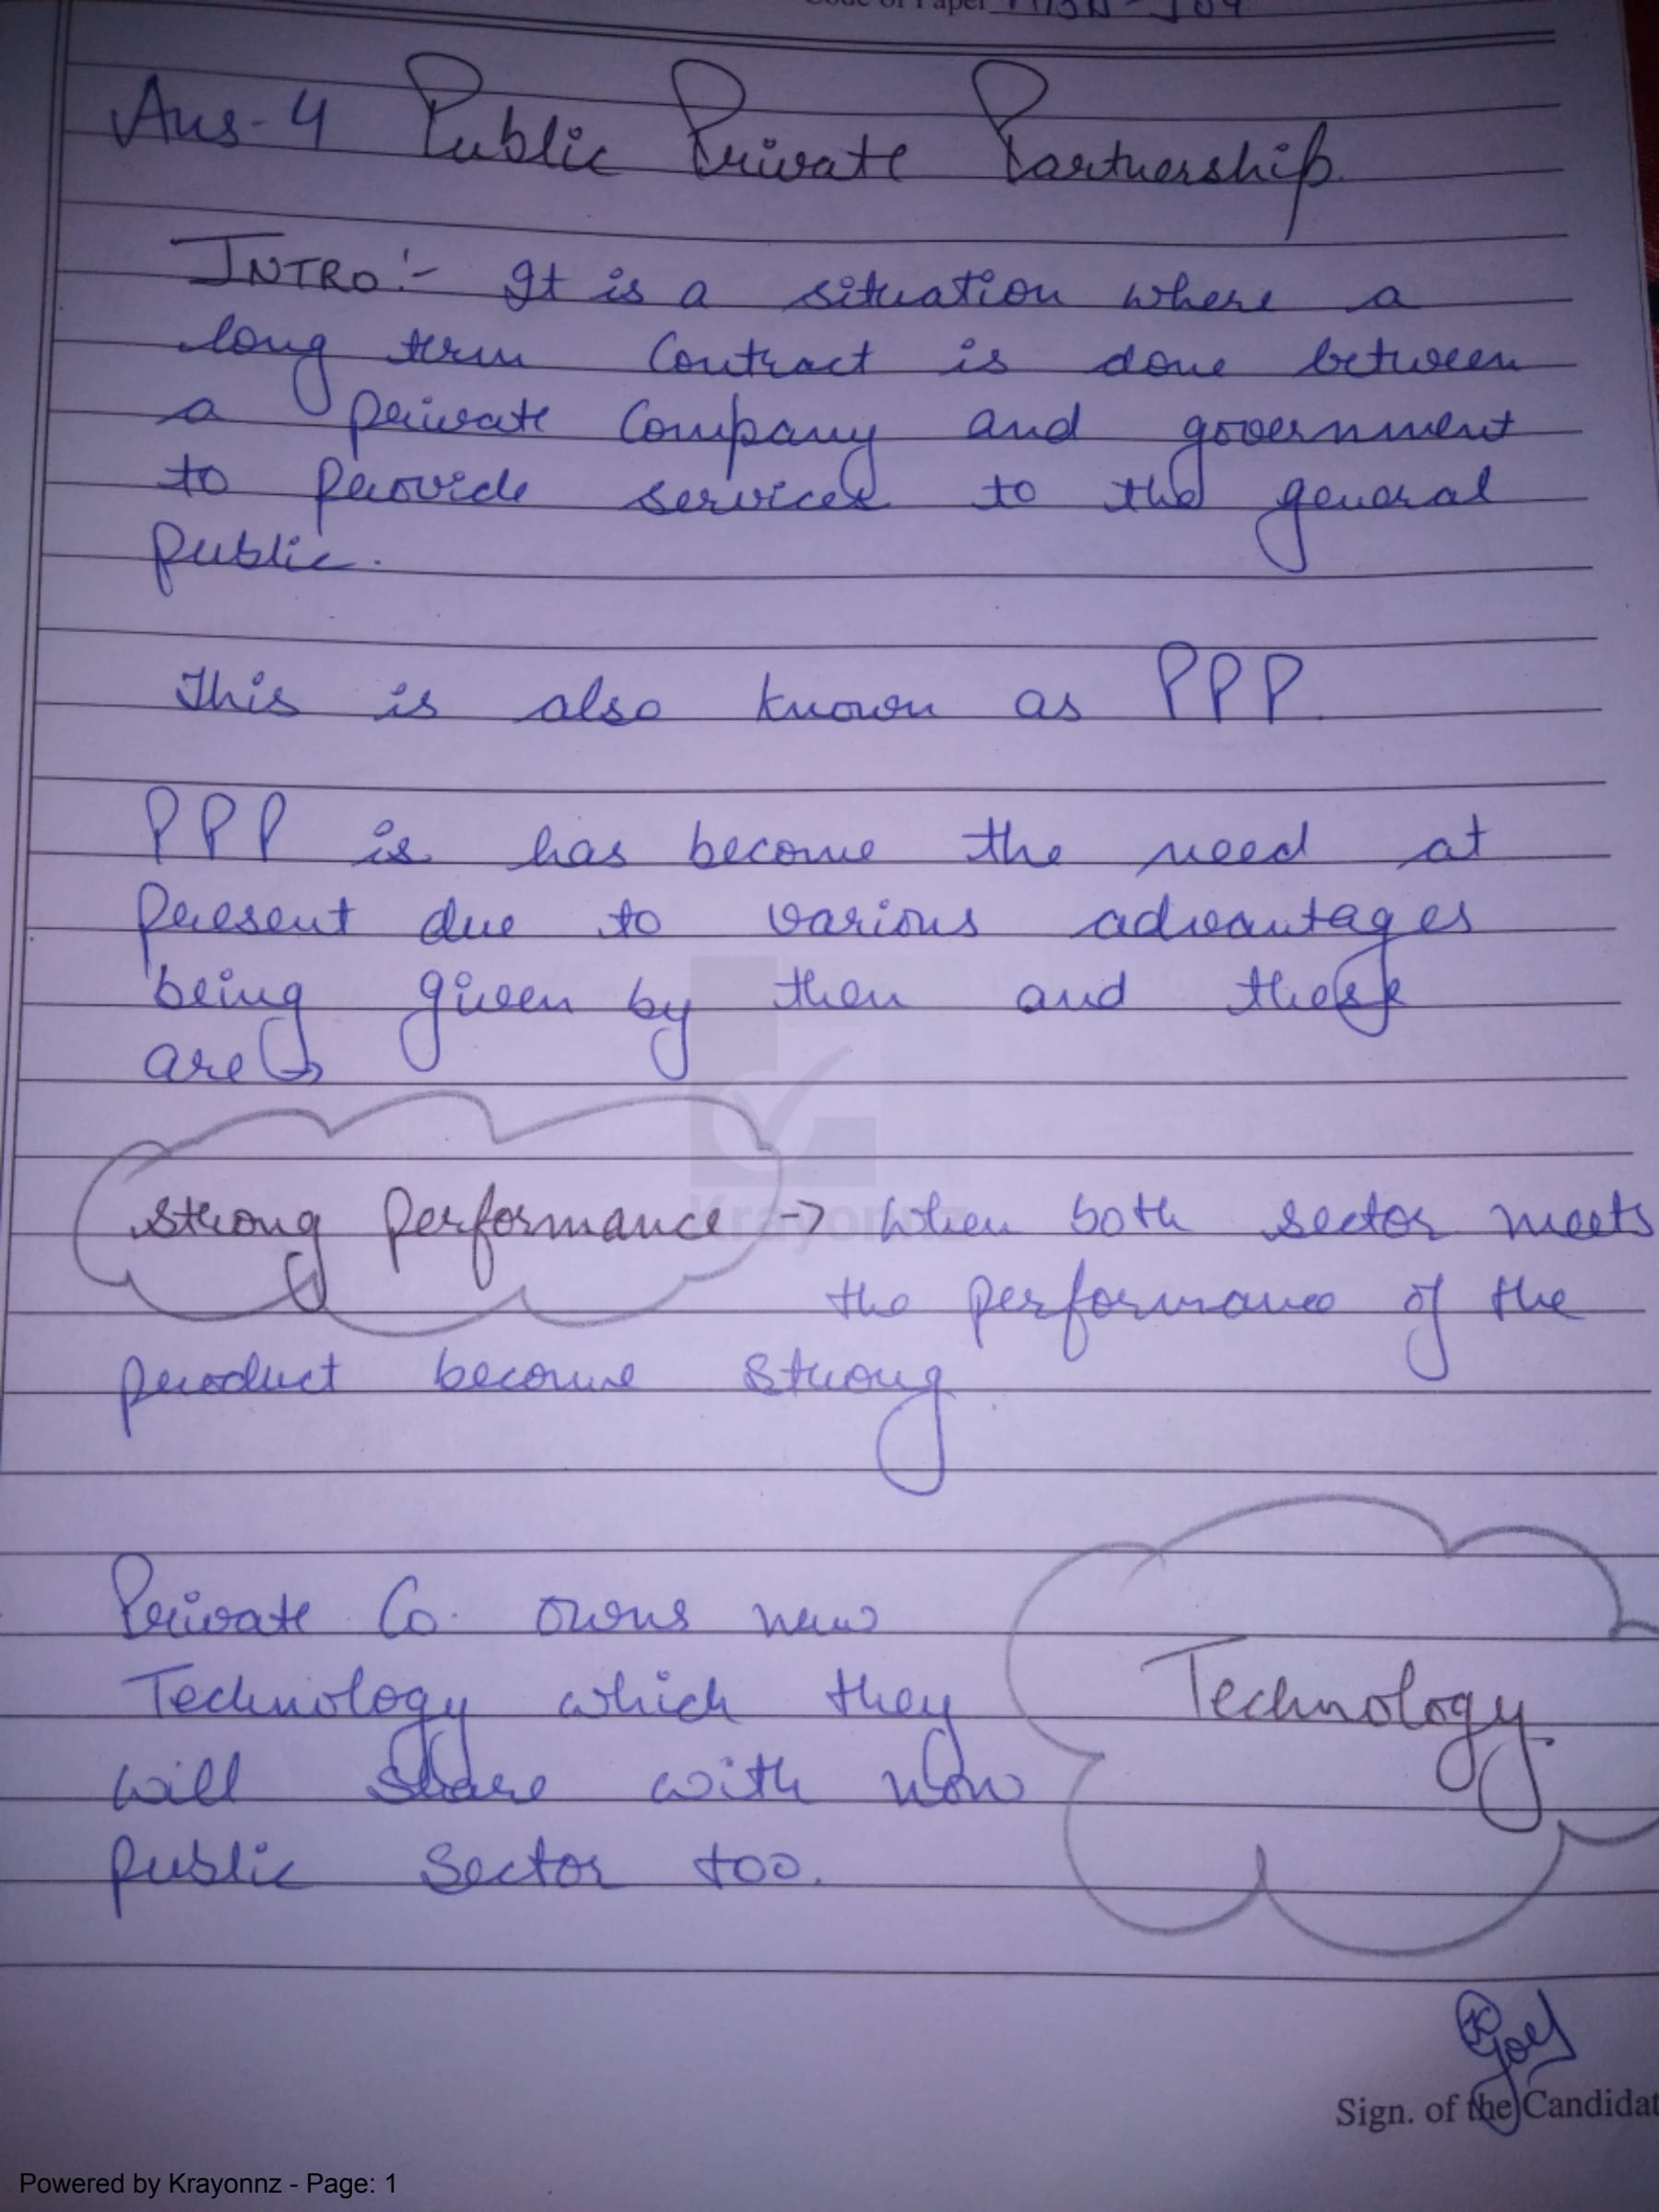 Code of Paper
Ans-4 Public Private Partnership
INTRO:- It is a situation where a
long term Contract is done between
a private Company and government
to provide services to the general
public.
This is also known as PPP.
PPP is has become the need at
present due to various advantages
being given by then and these
are
Strong Performance -> When both sector meets
the performance of the
product become strong
Private Co. owns new
Technology which they
will share with now
public sector too.
Technology
Goel
Sign. of the Candidat
Krayonnz
Powered by Krayonnz - Page: 1